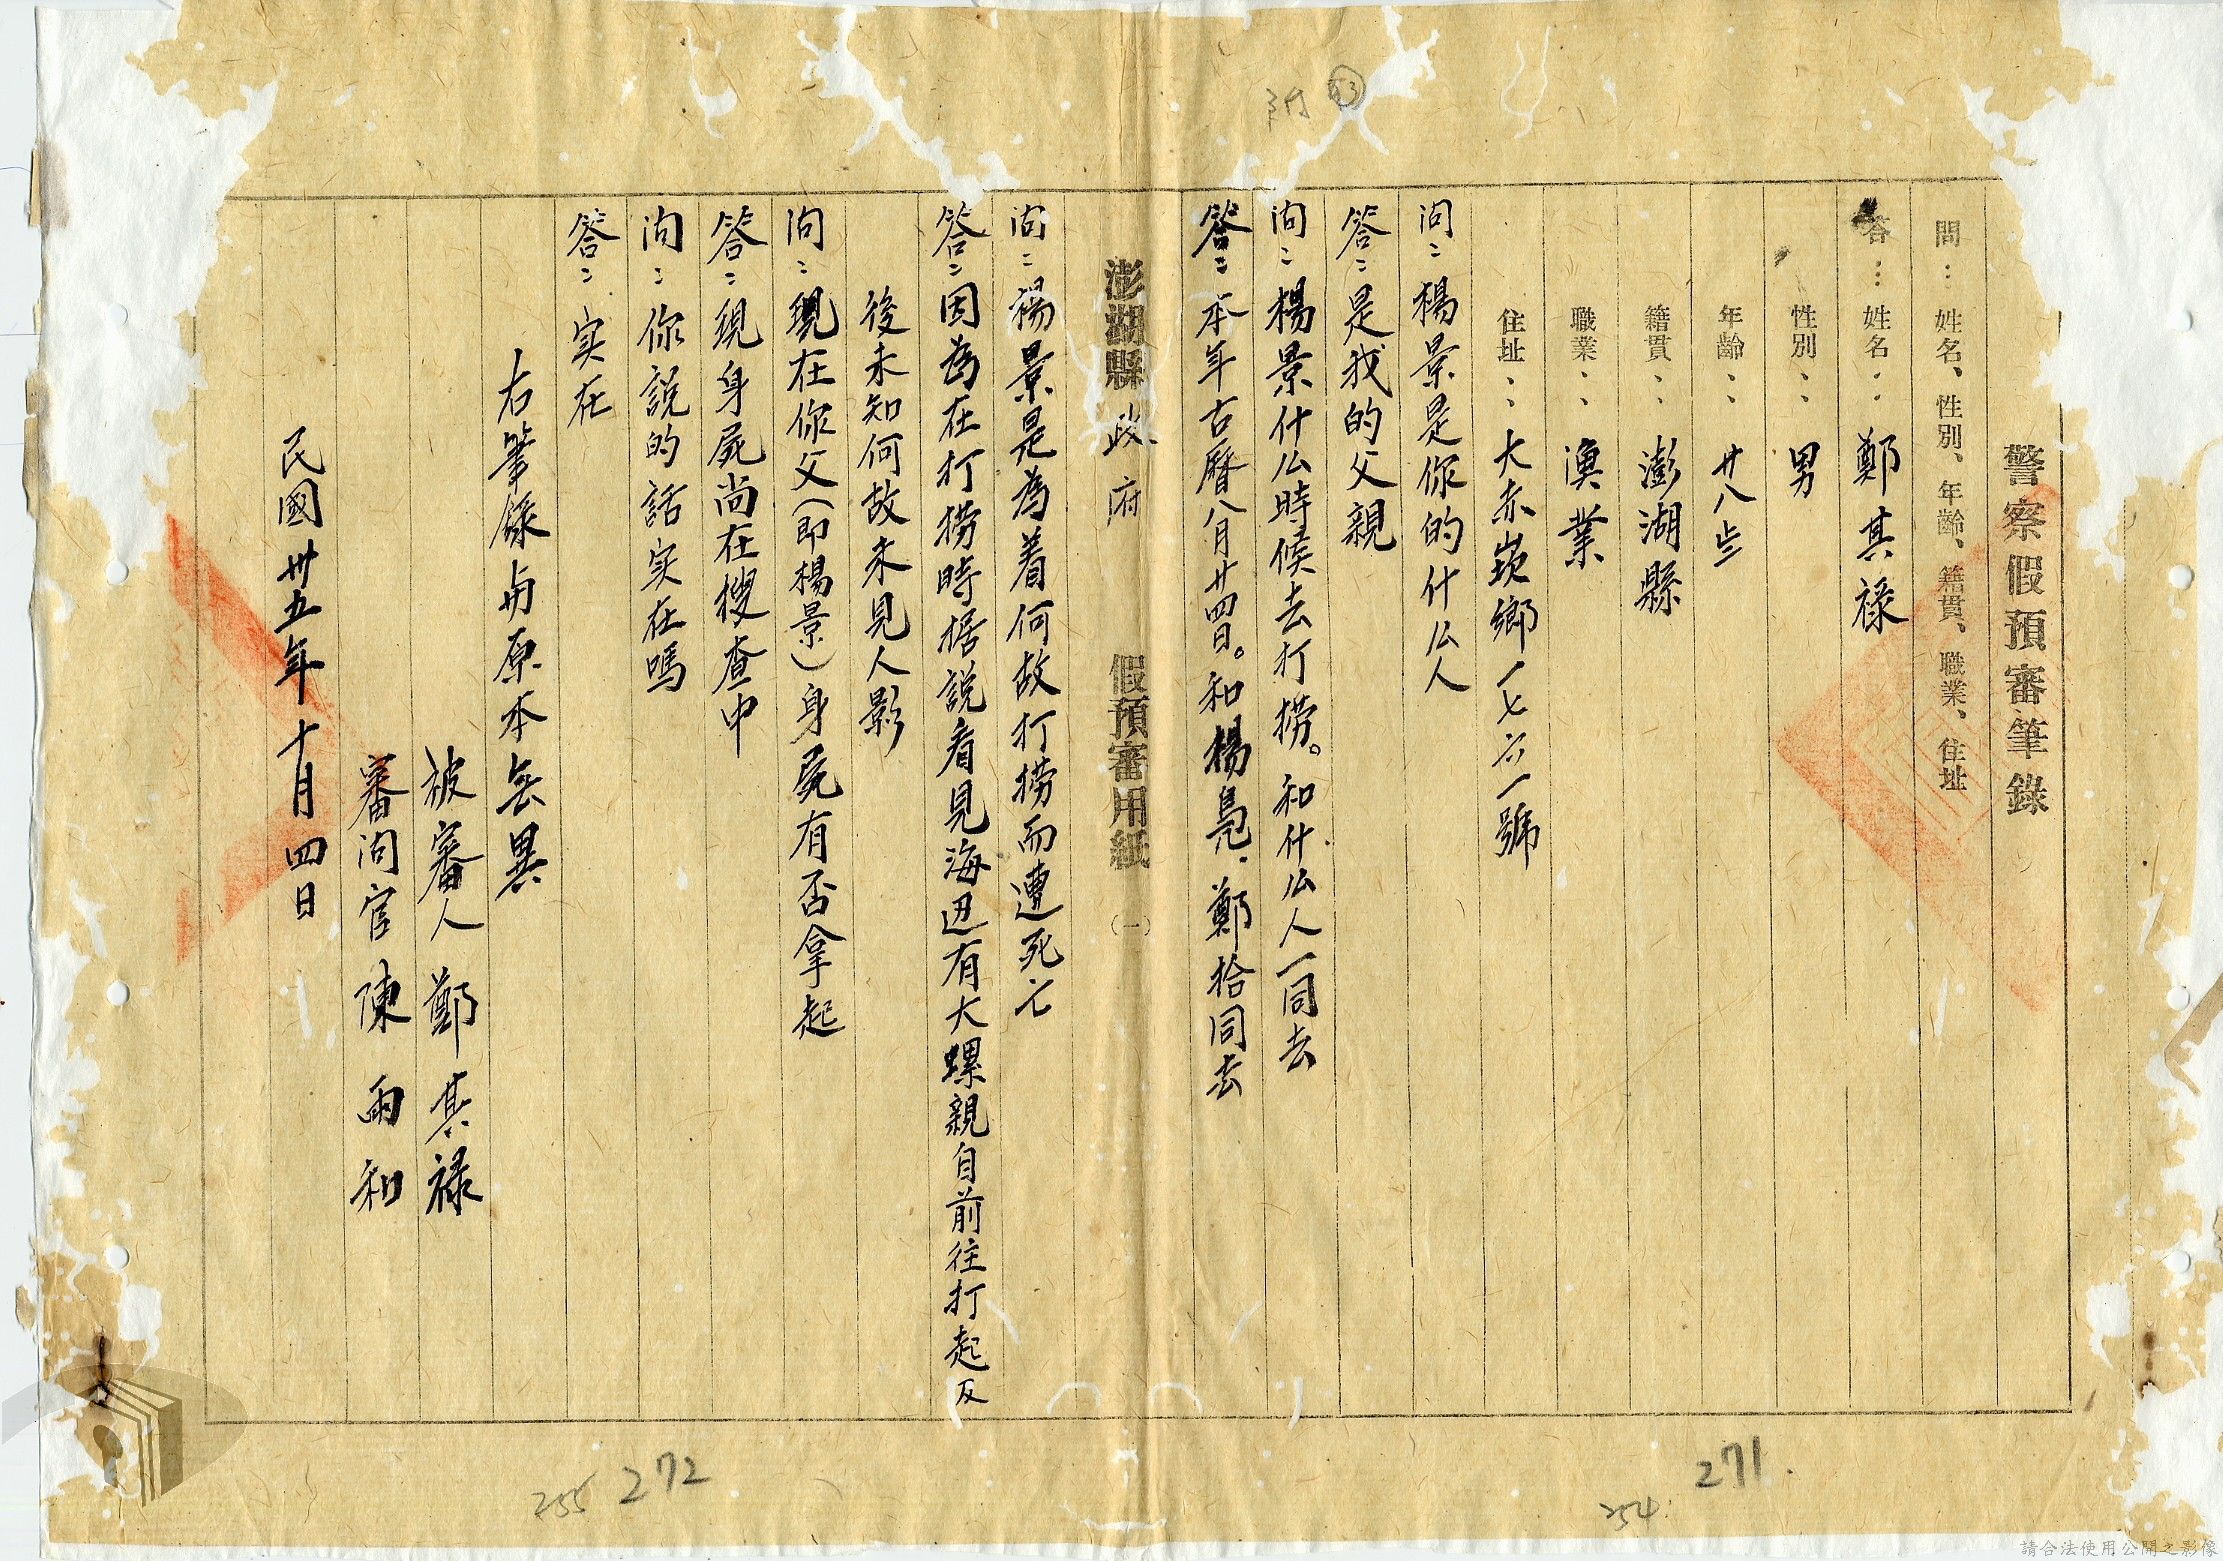 附 43
警察假預審筆錄
問：姓名、性別、年齡、籍貫、職業、住址
答：姓名：鄭其祿
性別：男
年齡：廿八歲
籍貫：澎湖縣
職業：漁業
住址：大赤崁鄉一七六一號
問：楊景是你的什仫人
答：是我的父親
問：楊景什仫時候去打撈。和什仫人一同去
答：本年古曆八月廿四日。和楊 鄭拾同去
澎湖縣政府 假預審用紙 (一)
问：楊景是為着何故打撈而遭死亡
答：因為在打撈時据說看見海边有大螺親自前往打起反
後未知何故未見人影
问：現在你父（即楊景）身屍有否拿起
答：現身屍尚在搜查中
问：你說的話实在嗎
答：实在
右筆錄與原本無異
被審人 鄭其祿
審问官 陳雨和
民國卅五年十月四日
271
254
272
255
請合法使用公開之影像